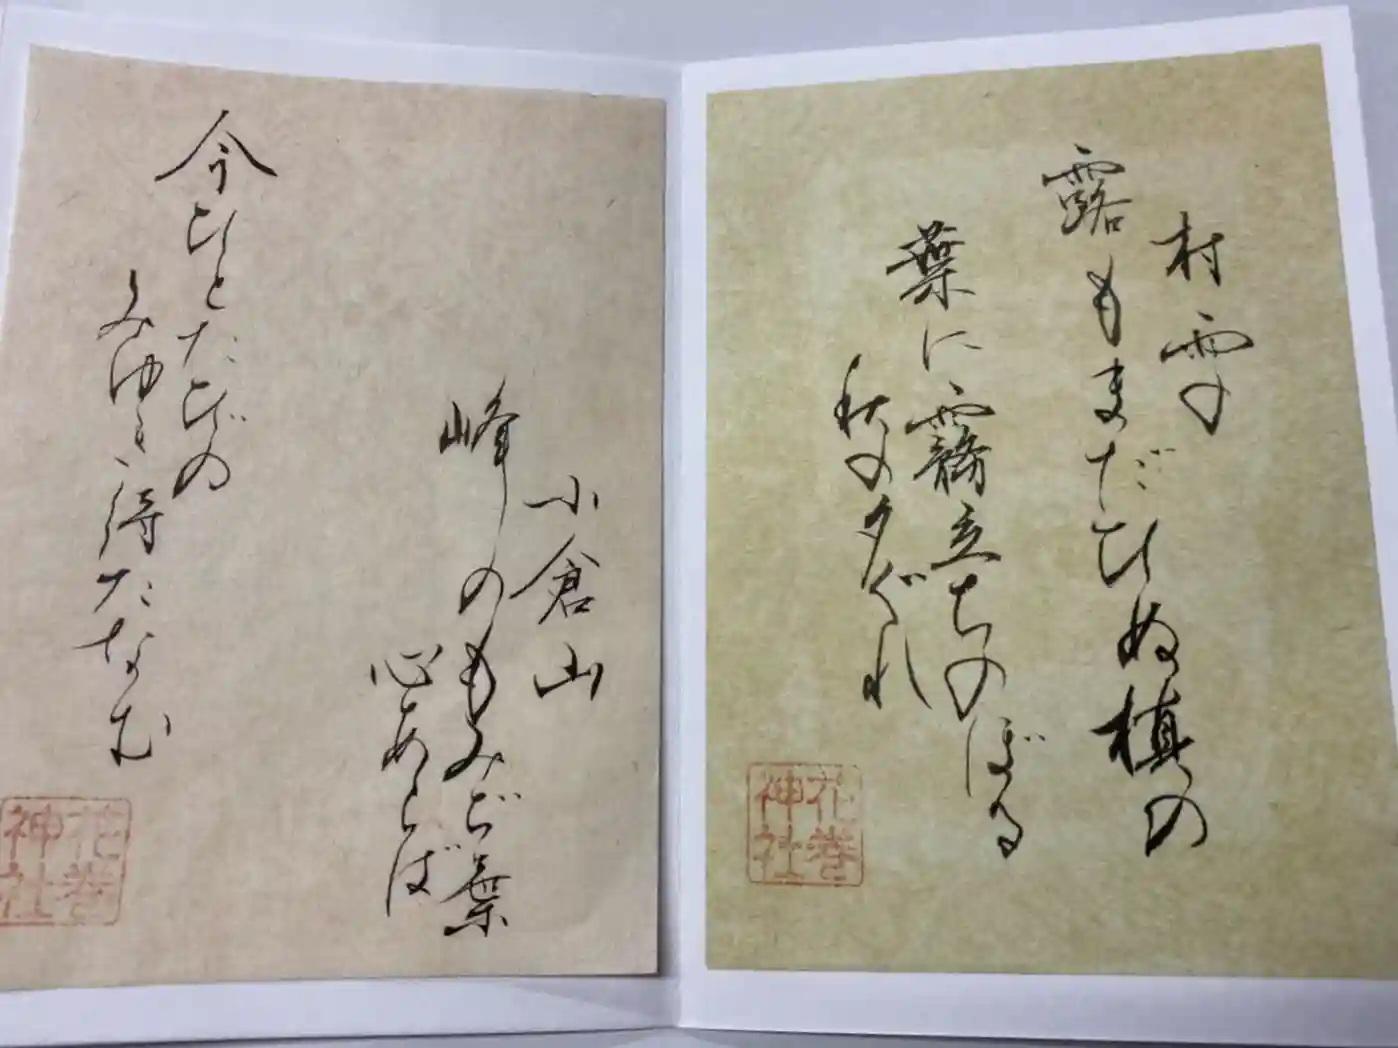 村雨の
露もまだひぬ槙の
葉に霧立ちのぼる
秋の夕ぐれ
花巻
神社
小倉山
峰のもみぢ葉
心あらば
今ひとたびの
みゆき待たなむ
花巻
神社